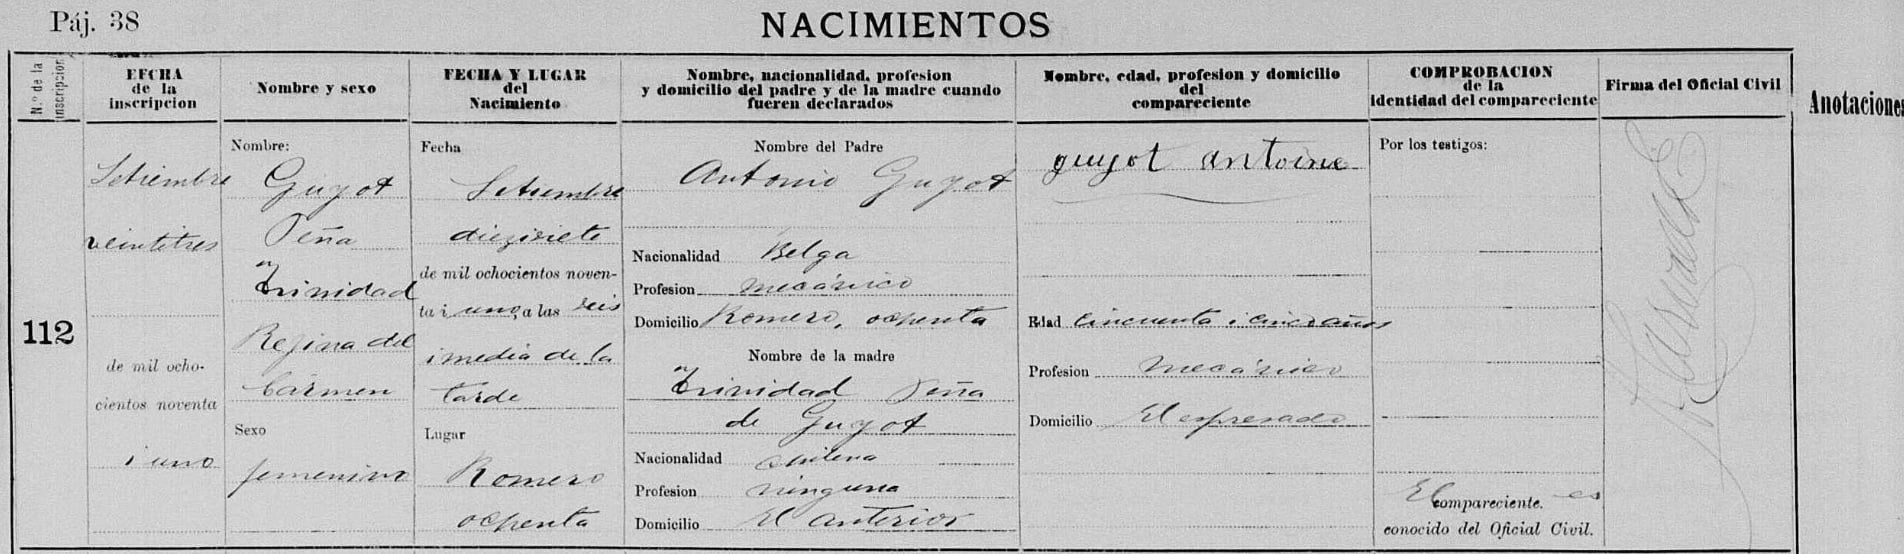 Páj. 38
NACIMIENTOS
N.º de la inscripcion
FECHA
de la
inscripcion
Nombre y sexo
FECHA Y LUGAR
del
Nacimiento
Nombre, nacionalidad, profesion
y domicilio del padre y de la madre cuando
fueren declarados
Nombre, edad, profesion y domicilio
del
compareciente
COMPROBACION
de la
identidad del compareciente
Firma del Oficial Civil
Anotaciones
112
Setiembre
veintitres
de mil ocho-
cientos noventa
i uno
Nombre:
Guyot
Peña
Trinidad
Rejina del
Cármen
Sexo
femenino
Fecha
Setiembre
diezisiete
de mil ochocientos noven-
ta i uno, a las seis
i media de la
tarde
Lugar
Romero
ochenta
Nombre del Padre
Antonio Guyot
Nacionalidad Belga
Profesion mecánico
Domicilio Romero, ochenta
Nombre de la madre
Trinidad Peña
de Guyot
Nacionalidad chilena
Profesion ninguna
Domicilio El anterior
guyot antoine
Edad cincuenta i cinco años
Profesion Mecánico
Domicilio El espresado
Por los testigos:
El compareciente es
conocido del Oficial Civil.